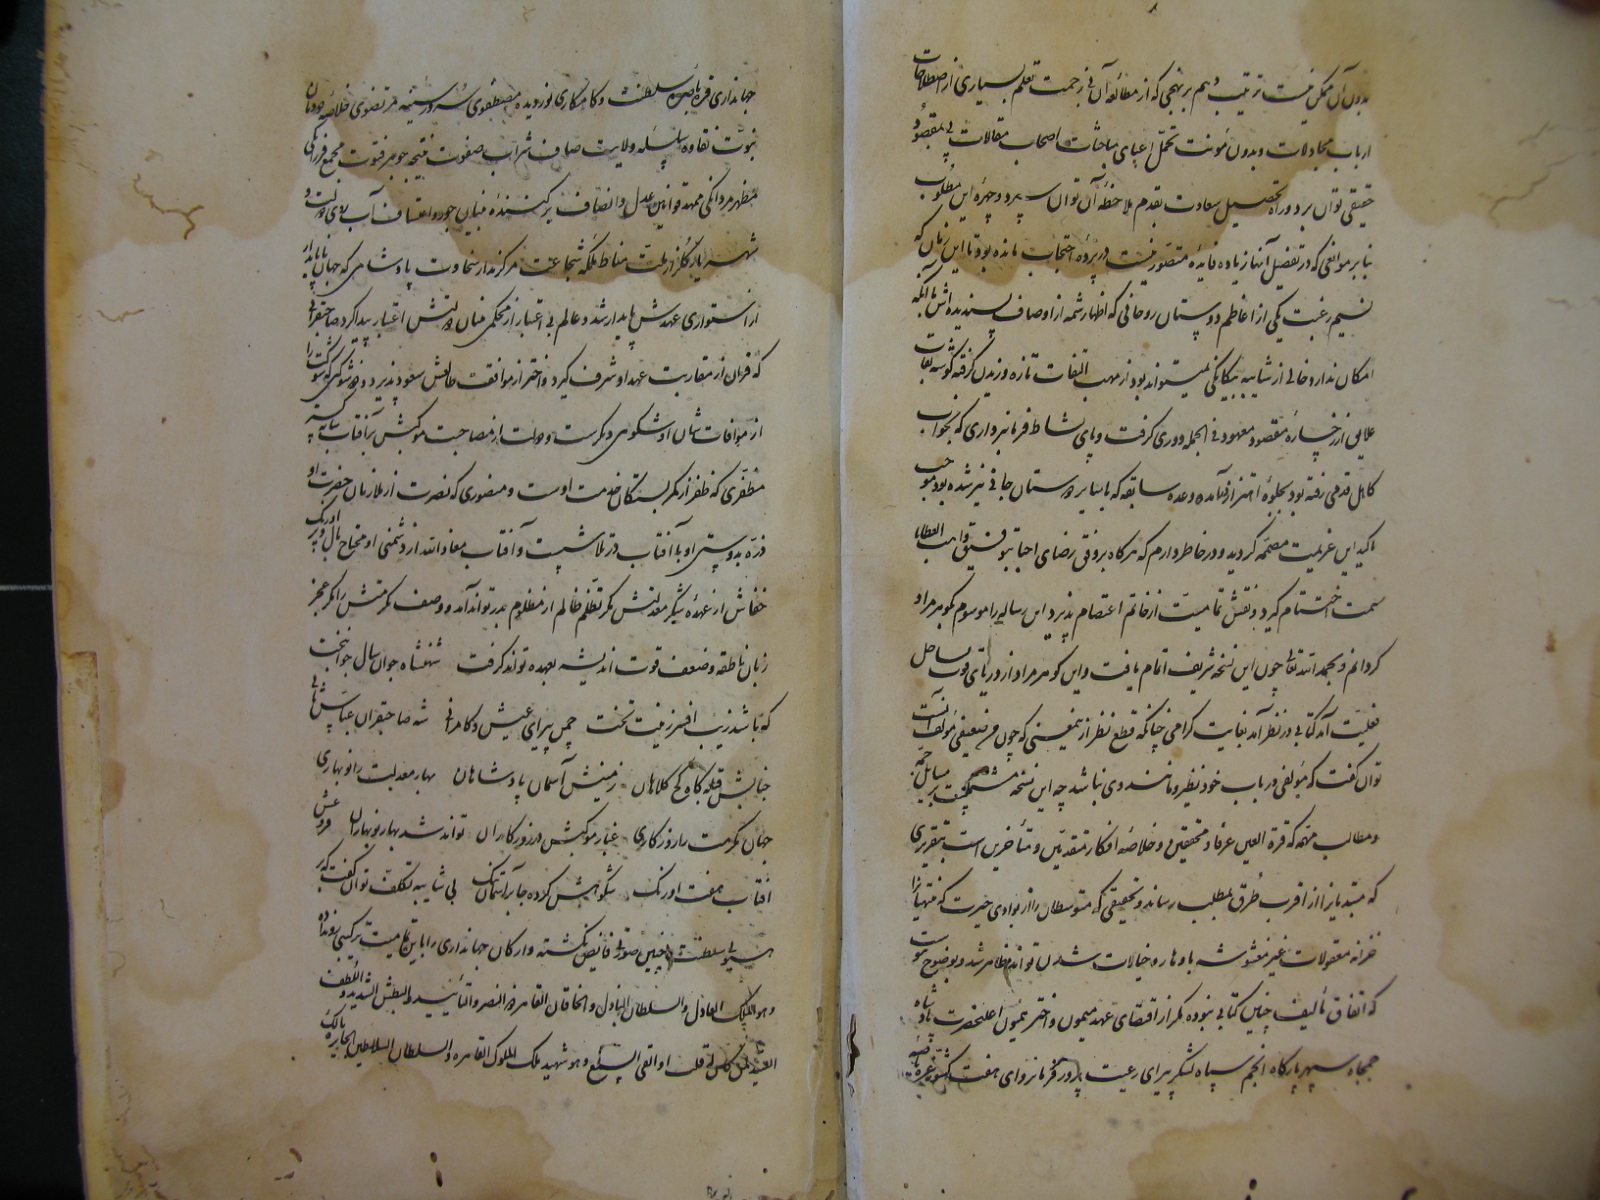 بدون آن ممکن نیست ترتیب دهم بر نهجی که از مطالعه آن بی زحمت تعلم بسیاری از اصطلاحات
ارباب مجادلات و بدون مؤنت تحمل اعبای مباحثات اصحاب مقالات پی بمقصود
حقیقی توان برد و راه تحصیل سعادت بقدم ملاحظه آن توان سپرد و چهره این مطلوب
بنا بر موانعی که در تفصیل آنها زیاده فایده متصور نیست در پرده احتجاب مانده بود تا این زمان که
نسیم رغبت یکی از اعاظم دوستان روحانی که اظهار شمه از اوصاف پسندیده اش با آنکه
امکان ندارد خالی از شایبه بیگانگی نمیتواند بود از مهب التفات تازه وزیدن گرفته گوشه نقاب
علایق از رخساره مقصود معهود فی الجمله دوری گرفت و پای نشاط فرمانبرداری که بخواب
کاهل قدمی رفته بود بجلوه اهتزاز درآمده وعده سابقه که با سایر دوستان جانی نیز شده بود موجب
تاکید این عزیمت مصممه گردید و در خاطر دارم که هر گاه بر وفق رضای احبا بتوفیق واهب العطایا
سمت اختتام گیرد و نقش تمامیت از خاتم اعتصام پذیرد این رساله را موسوم بگوهر مراد
گردانم و بحمد الله تعالی چون این نسخه شریف اتمام یافت و این گوهر مراد از دریای قوت بساحل
فعلیت آمد کتابی در نظر آمد بغایت گرامی چنانکه قطع نظر از همین که چون من ضعیفی مؤلف آنست
توان گفت که مؤلفی در باب خود نظیر و مانند وی نباشد چه این نسخه مشتملست بر مسایل جمه
و مطالب مهمه که قرة العین عرفا و محققین و خلاصه افکار متقدمین و متأخرین است بتقریری
که مبتدیانرا از اقرب طرق بمطلب رساند و تحقیقی که متوسطان را از بوادی حیرت که منتهیانرا
خزانه معقولات غیر مغشوشه باوهام و خیالات شدن تواند ظاهر شد و بوضوح پیوست
که اتفاق تألیف چنین کتابی نبوده مگر از اقتضای عهد میمون و اختر همیون اعلیحضرت پادشاه
جمجاه سپهر بارگاه انجم سپاه لشکر پیرای رعیت پرور فرمانروای هفت کشور غره ناصیه
جهانداری قره باصره سلطنت و کامکاری نوردیده مصطفوی سرور سینه مرتضوی خلاصه دودمان
نبوت نقاوه سلسله ولایت صاف شراب صفوت نتیجه جوهر فتوت مجمع فرزانگی
مظهر مردانگی ممهد قوانین عدل و انصاف برکننده بنیان جور و اعتساف آب روی دولت و
شهریار گلزار ملت مناط ملکه شجاعت مرکز مدار سخاوت پادشاهی که جهان ناپایدار
از استواری عهدش پایدار شد و عالم بی اعتبار از محکمی بنیان دولتش اعتبار پیدا کرد صاحبقرانی
که قران از مقارنت عهد او شرف گیرد و اختر از موافقت طالعش سعود پذیرد ذی شوکتی که شوکت را
از موافات شان او شکوهی دیگرست و دولت از مصاحبت موکبش بر آفتاب سایه گستر
مظفری که ظفر از کمر بستگان خدمت اوست و منصوری که نصرت از ملازمان حضرت او
ذره بدوستی او با آفتاب در تلاشیست و آفتاب معاذ الله از دشمنی او محتاج بال و پر
خفاش از عهده شکر معدلتش مگر تظلم ظالم از مظلوم بدر تواند آمد و وصف مکرمتش را مگر عجز
زبان ناطقه و ضعف قوت اندیشه بعهده تواند گرفت شهنشاه جوان سال جوانبخت
که باشد زیب افسر زینت تخت چمن پیرای عیش و کامرانی شه صاحبقران عباس ثانی
جنابش قبله گاه کج کلاهان زمینش آسمان پادشاهان بهار معدلت را نوبهاری
جهان مکرمت را روزگاری غبار موکبش در زور کاران تواند شد بهار نوبهاران فروغش
آفتاب هفت اورنگ شکوهش کرده جا بر آسمان تنگ بی شایبه تکلف توان گفت که
هیولی سلطنت را چنین صورتی فایض نگشته و ارکان جهانداری را باین تمامیت ترکیبی
و هو الملک العادل و السلطان الباذل و الخاقان القاهر ذو النصر و التأیید و البطش الشدید و اللطف
العتید لمن کان له قلب او القی السمع و هو شهید ملک الملوک القاهره و السلطان السلاطین الجبابره مالک